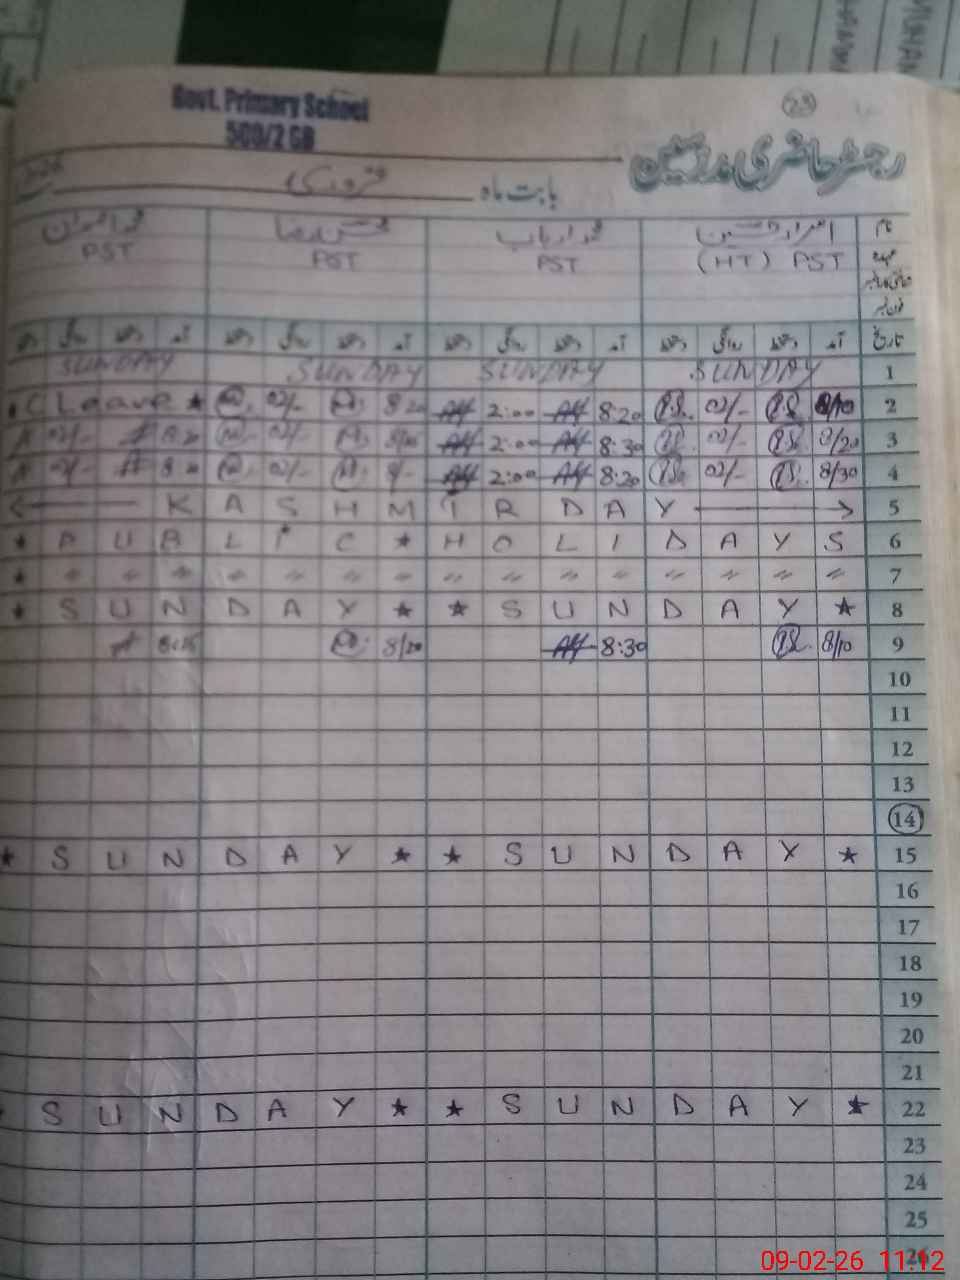 Govt. Primary School
500/2 GB
23
رجسٹر حاضری مدرسین
بابت ماہ فروری
نام اسرار حسین محمد ارباب محسن رضا
عہدہ (HT) PST PST PST PST
فون نمبر
تاریخ آمد دستخط روانگی دستخط آمد دستخط روانگی دستخط آمد دستخط روانگی دستخط آمد دستخط روانگی
1 SUNDAY SUNDAY SUNDAY SUNDAY
C Leave ★ 02/- 8/20 2:00 8:20 02/- 8/10 2
02/- 8/20 02/- 2:00 8:30 02/- 8/20 3
02/- 02/- 8/- 2:00 8:20 02/- 8/30 4
← KASHMIR DAY → 5
★ PUBLIC ★ HOLIDAYS 6
★ " " " " " " " " " " " " " " 7
★ SUNDAY ★ ★ SUNDAY ★ 8
8:25 8/20 8:30 8/10 9
10
11
12
13
14
★ SUNDAY ★ ★ SUNDAY ★ 15
16
17
18
19
20
21
★ SUNDAY ★ ★ SUNDAY ★ 22
23
24
25
26
09-02-26 11:12